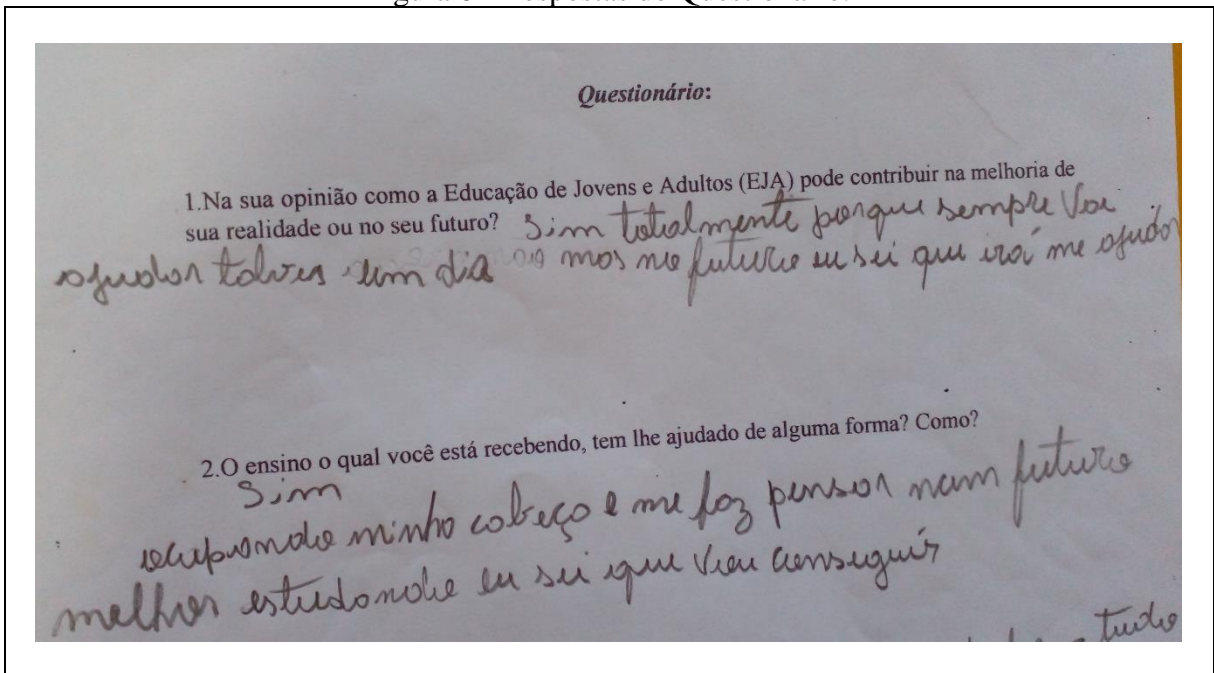 Questionário:
1.Na sua opinião como a Educação de Jovens e Adultos (EJA) pode contribuir na melhoria de
sua realidade ou no seu futuro? Sim totalmente porque sempre vai
ajudar talves um dia mas no futuro eu sei que irá me ajudar
2.O ensino o qual você está recebendo, tem lhe ajudado de alguma forma? Como?
Sim
ocupando minha cabeça e me faz pensar num futuro
melhor estudando eu sei que vou conseguir
tudo